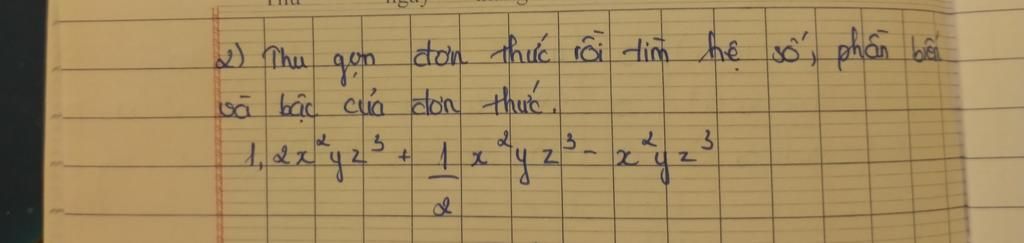 2) Thu gọn đơn thức rồi tìm hệ số, phần biến
và bậc của đơn thức.
1, 2x²yz³ + 1/2 x²yz³ - x²yz³